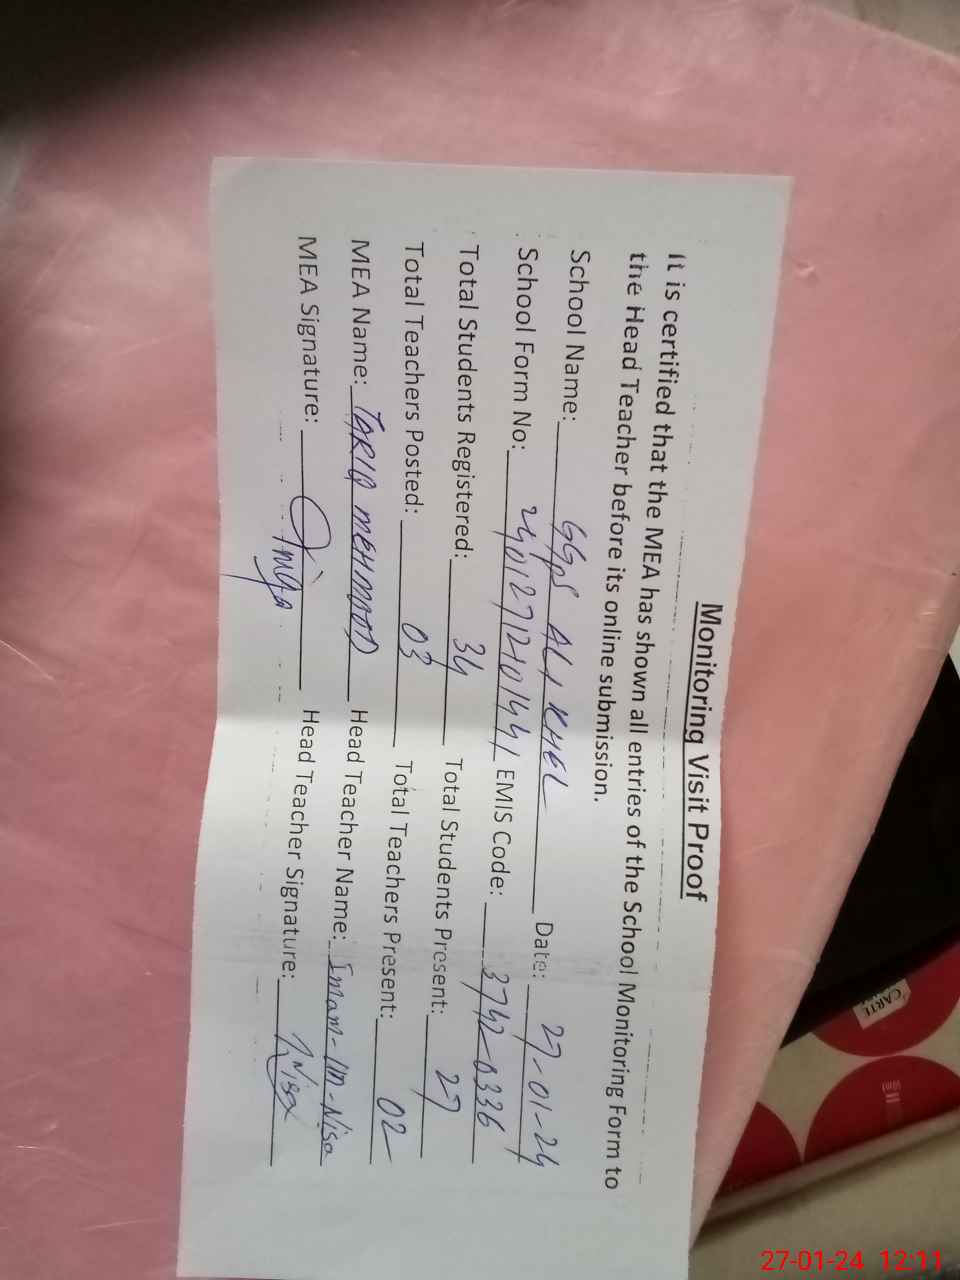 Monitoring Visit Proof
It is certified that the MEA has shown all entries of the School Monitoring Form to
the Head Teacher before its online submission.
School Name: GGPS ALI KHEL Date: 27-01-24
School Form No: 24012712101441 EMIS Code: 37420336
Total Students Registered: 34 Total Students Present: 27
Total Teachers Posted: 03 Total Teachers Present: 02
MEA Name: TARIQ MEHMOOD Head Teacher Name: Imam-un-Nisa
MEA Signature: Head Teacher Signature: Nisa
CARTE
27-01-24 12:11